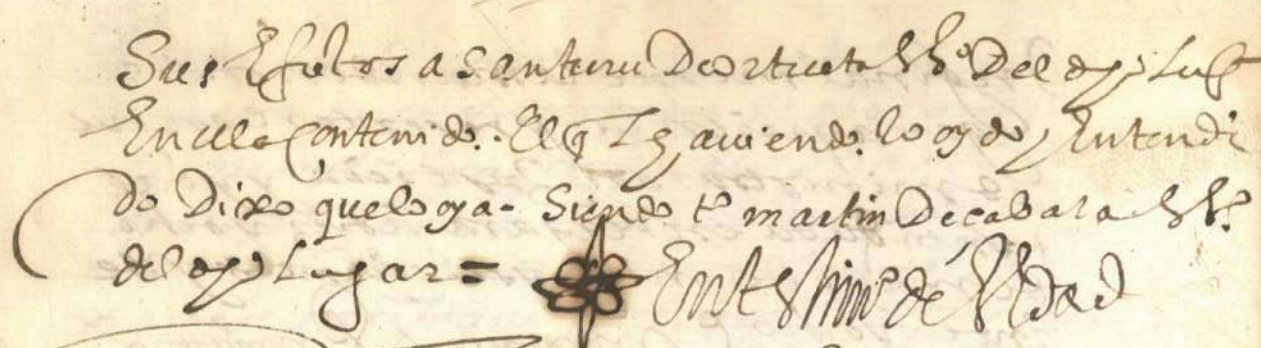 Sus Efetos a Santuru De ortueta bzº Del dhº Lugʳ
En el contenido. El q̃l haviendo lo oydo y Entendi
do Dixo que lo oya. Siendo tº martin De cabara bzº.
del dhº Lugar = En testimº de Verdad